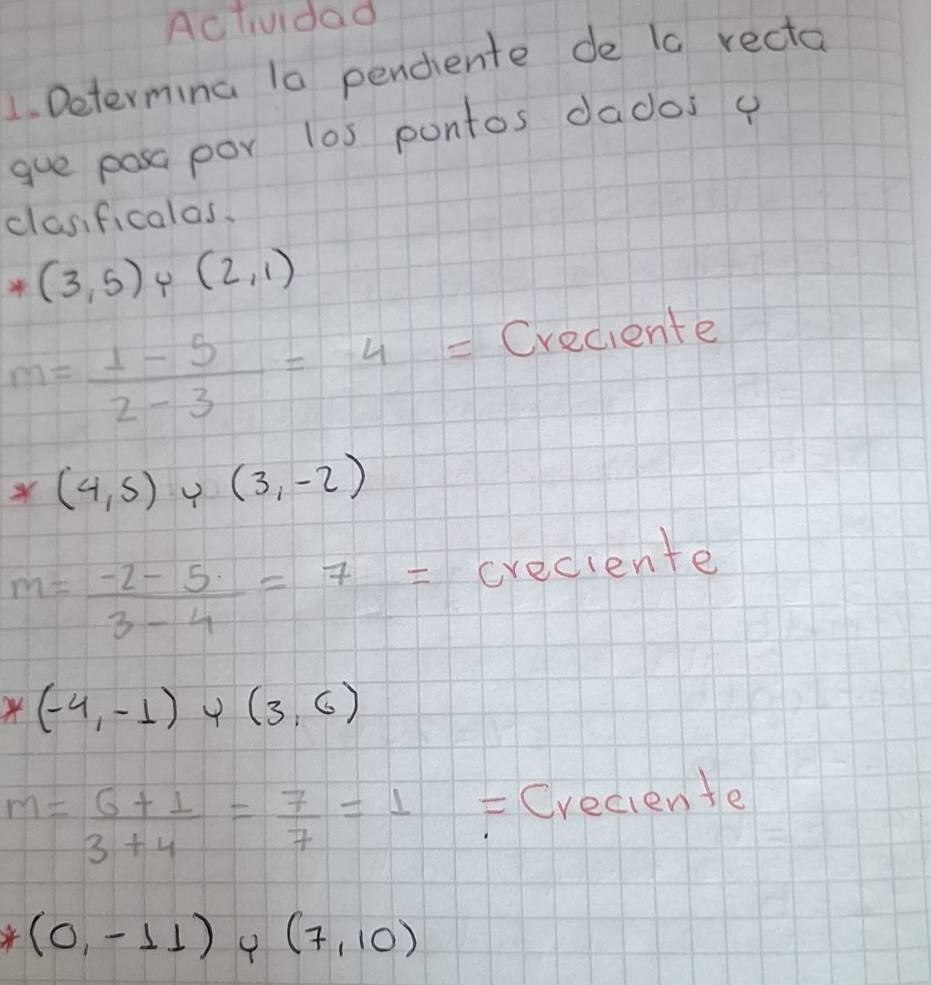 Actividad
1. Determina la pendiente de la recta
que pasa por los puntos dados y
clasificalas.
* (3,5) y (2,1)
m = 1 - 5 / 2 - 3 = 4 = Creciente
* (4,5) y (3,-2)
m = -2 - 5 / 3 - 4 = 7 = creciente
* (-4,-1) y (3,6)
m = 6 + 1 / 3 + 4 = 7 / 7 = 1 = Creciente
* (0,-11) y (7,10)